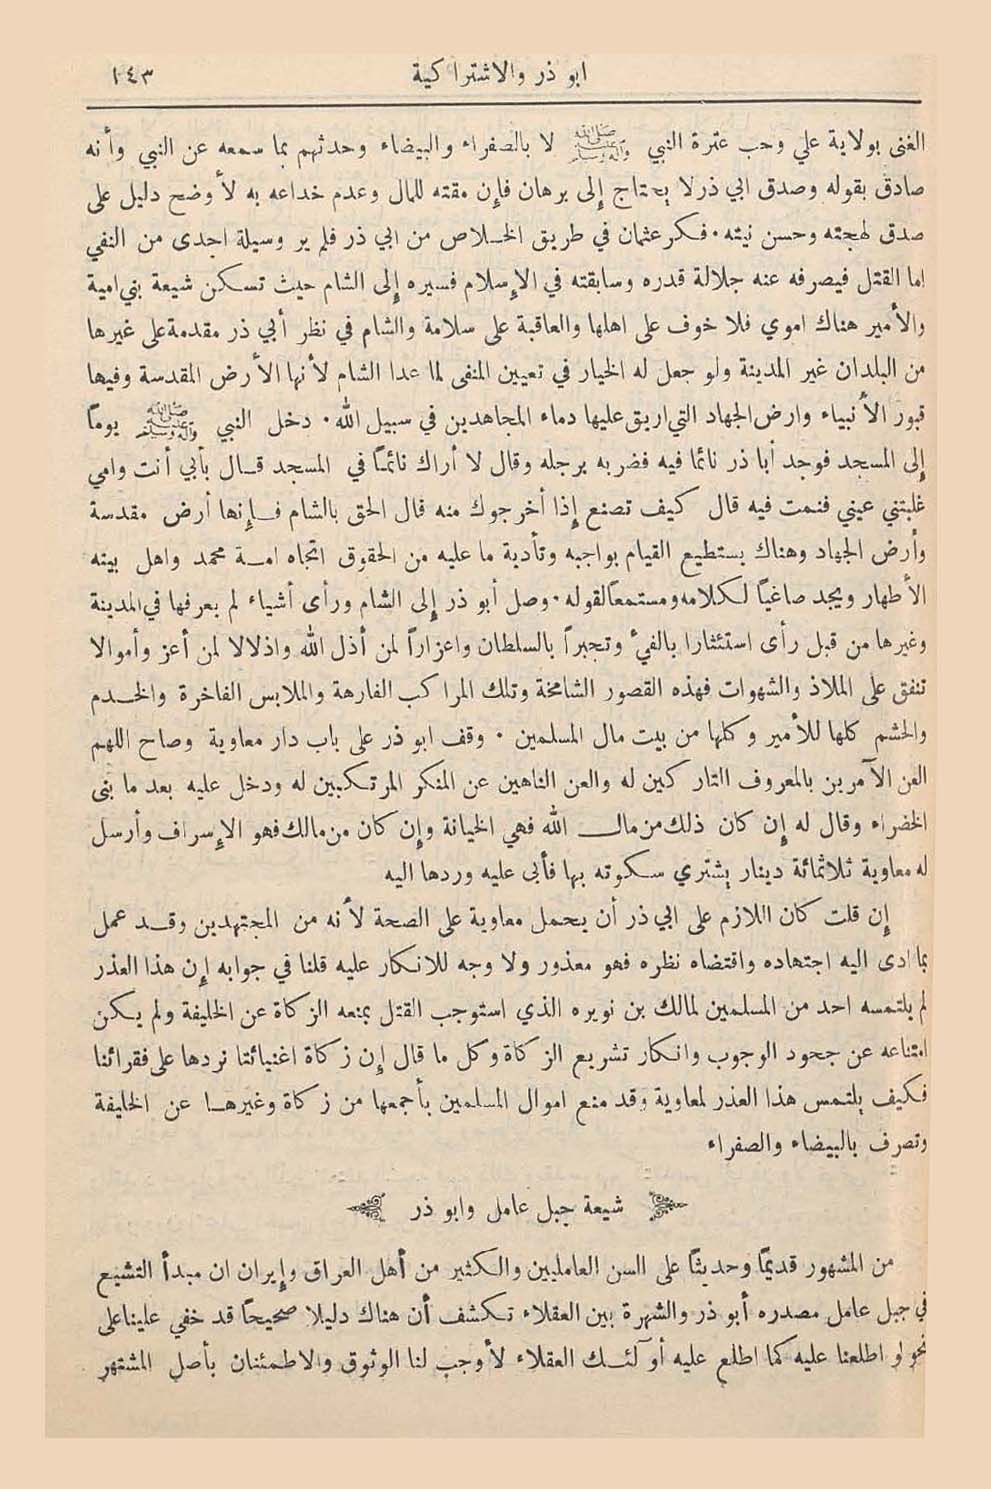 ابو ذر والاشتراكية ١٤٣
الغنى بولاية علي وحب عترة النبي صلى الله عليه وآله وسلم لا بالصفراء والبيضاء وحدثهم بما سمعه عن النبي وأنه
صادق بقوله وصدق ابي ذر لا يحتاج إلى برهان فإن مقته للمال وعدم خداعه به لأوضح دليل على
صدق لهجته وحسن نيته. ففكر عثمان في طريق الخلاص من ابي ذر فلم ير وسيلة اجدى من النفي
اما القتل فيصرفه عنه جلالة قدره وسابقته في الإسلام فسيره إلى الشام حيث تسكن شيعة بني امية
والأمير هناك اموي فلا خوف على اهلها والعاقبة على سلامة والشام في نظر أبي ذر مقدمة على غيرها
من البلدان غير المدينة ولو جعل له الخيار في تعيين المنفى لما عدا الشام لأنها الأرض المقدسة وفيها
قبور الأنبياء وارض الجهاد التي اريق عليها دماء المجاهدين في سبيل الله. دخل النبي صلى الله عليه وآله وسلم يوماً
إلى المسجد فوجد أبا ذر نائما فيه فضربه برجله وقال لا أراك نائماً في المسجد قال بأبي أنت وامي
غلبتني عيني فنمت فيه قال كيف تصنع إذا أخرجوك منه قال الحق بالشام فإنها أرض مقدسة
وأرض الجهاد وهناك يستطيع القيام بواجبه وتأدية ما عليه من الحقوق اتجاه امة محمد واهل بيته
الأطهار ويجد صاغياً لكلامه ومستمعاً لقوله. وصل أبو ذر إلى الشام ورأى أشياء لم يعرفها في المدينة
وغيرها من قبل رأى استئثارا بالفيء وتجبراً بالسلطان واعزازاً لمن أذل الله واذلالا لمن أعز وأموالا
تنفق على الملاذ والشهوات فهذه القصور الشامخة وتلك المراكب الفارهة والملابس الفاخرة والخدم
والحشم كلها للأمير وكلها من بيت مال المسلمين. وقف ابو ذر على باب دار معاوية وصاح اللهم
العن الآمرين بالمعروف التاركين له والعن الناهين عن المنكر المرتكبين له ودخل عليه بعد ما بنى
الخضراء وقال له إن كان ذلك من مال الله فهي الخيانة وإن كان من مالك فهو الإسراف وأرسل
له معاوية ثلاثمائة دينار يشتري سكوته بها فأبى عليه وردها اليه
إن قلت كان اللازم على ابي ذر أن يحمل معاوية على الصحة لأنه من المجتهدين وقد عمل
بما ادى اليه اجتهاده واقتضاه نظره فهو معذور ولا وجه للانكار عليه قلنا في جوابه إن هذا العذر
لم يلتمسه احد من المسلمين لمالك بن نويره الذي استوجب القتل بمنعه الزكاة عن الخليفة ولم يكن
امتناعه عن جحود الوجوب وانكار تشريع الزكاة وكل ما قال إن زكاة اغنيائنا نردها على فقرائنا
فكيف يلتمس هذا العذر لمعاوية وقد منع اموال المسلمين بأجمعها من زكاة وغيرها عن الخليفة
وتصرف بالبيضاء والصفراء
شيعة جبل عامل وابو ذر
من المشهور قديماً وحديثاً على السن العامليين والكثير من أهل العراق وإيران ان مبدأ التشيع
في جبل عامل مصدره أبو ذر والشهرة بين العقلاء تكشف أن هناك دليلا صحيحاً قد خفي علينا على
نحو لو اطلعنا عليه كما اطلع عليه أولئك العقلاء لأوجب لنا الوثوق والاطمئنان بأصل المشتهر